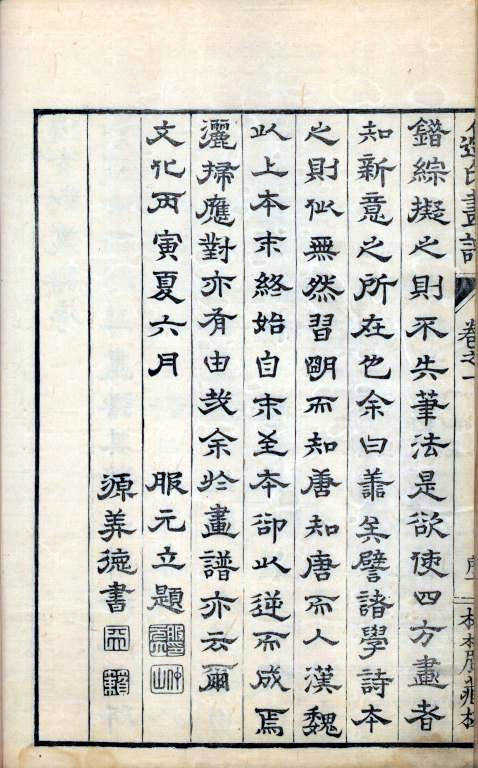 邉氏畫譜 卷之一 序
錯綜擬之則不失筆法是欲使四方畫者
知新意之所在也余曰善矣譬諸學詩本
之則似無然習明而知唐知唐而人漢魏
以上本末終始自末至本卻以逆而成焉
灑掃應對亦有由哉余於畫譜亦云爾
文化丙寅夏六月
服元立題
源美德書